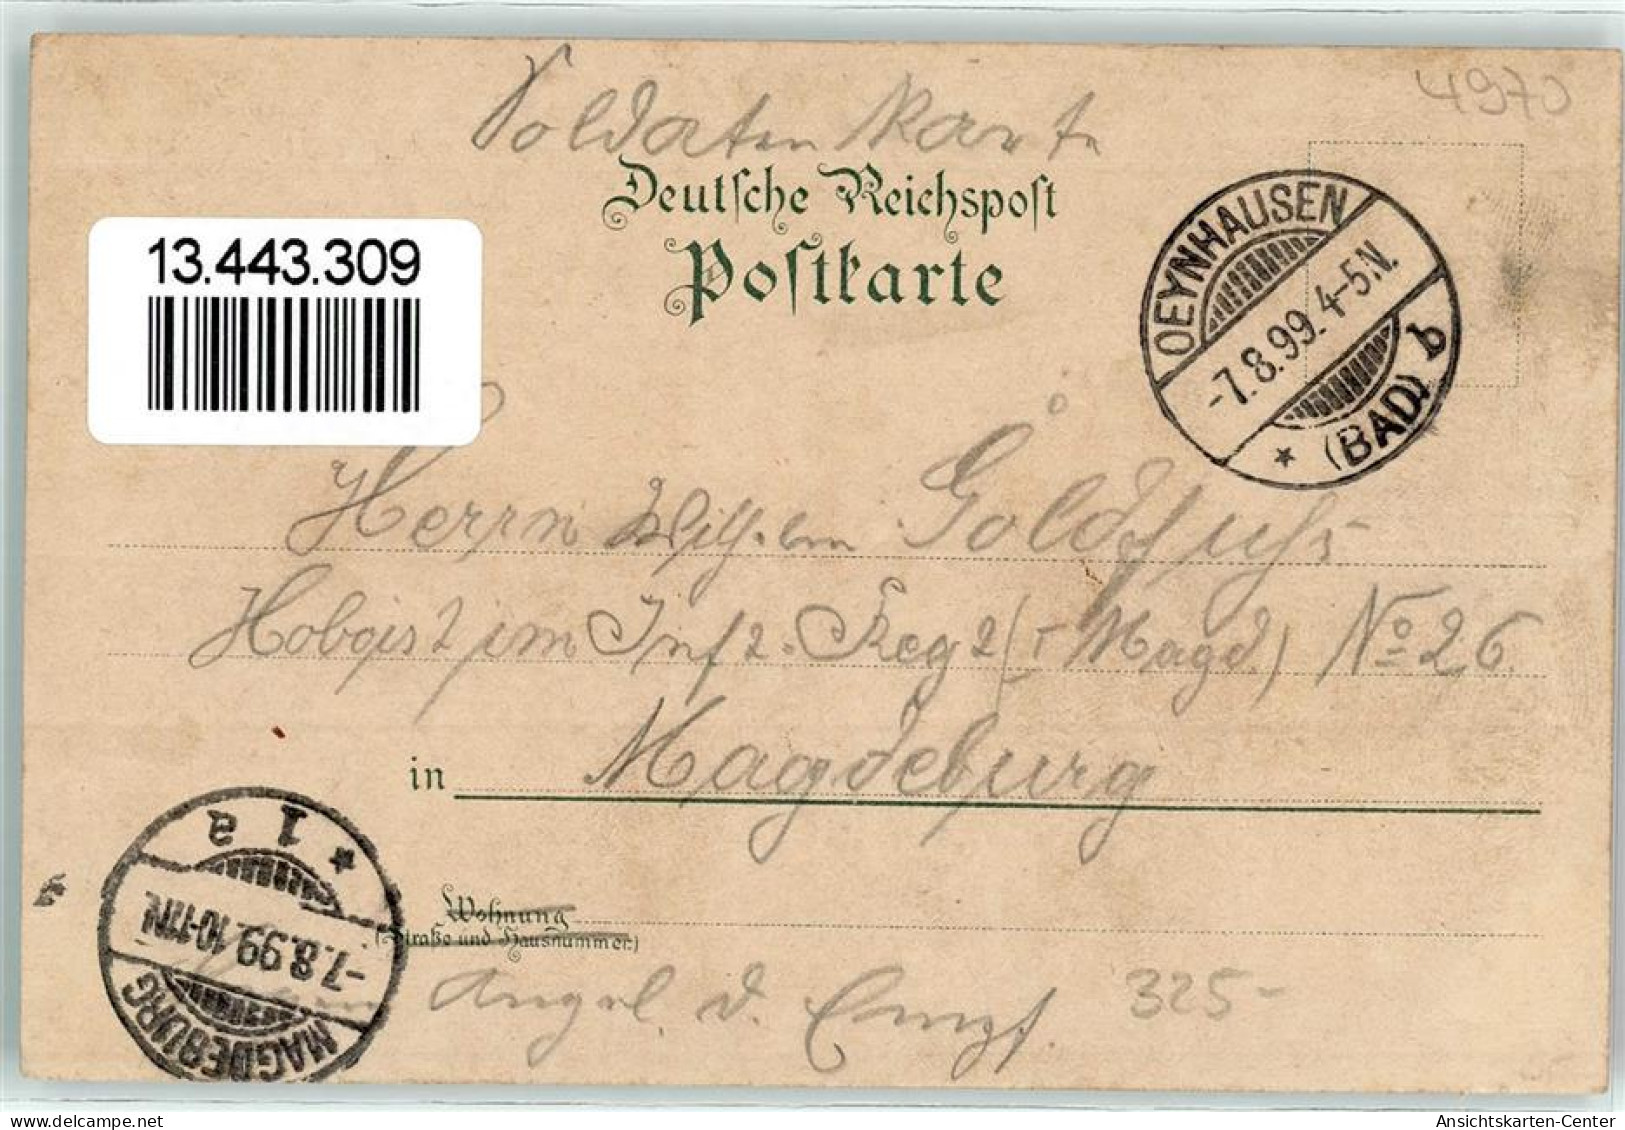 4970
Soldaten Karte
Deutsche Reichspost
Postkarte
13.443.309
OEYNHAUSEN
-7.8.99.4-5N.
* (BAD) b
Herrn Wilhelm Goldfuß
Hoboist im Inf Reg (Magd) No 26.
in Magdeburg
* 1 a
-7.8.99.10-11N.
MAGDEBURG
Wohnung
(Straße und Hausnummer)
Angel. d. Empf
325-
Ansichtskarten-Center